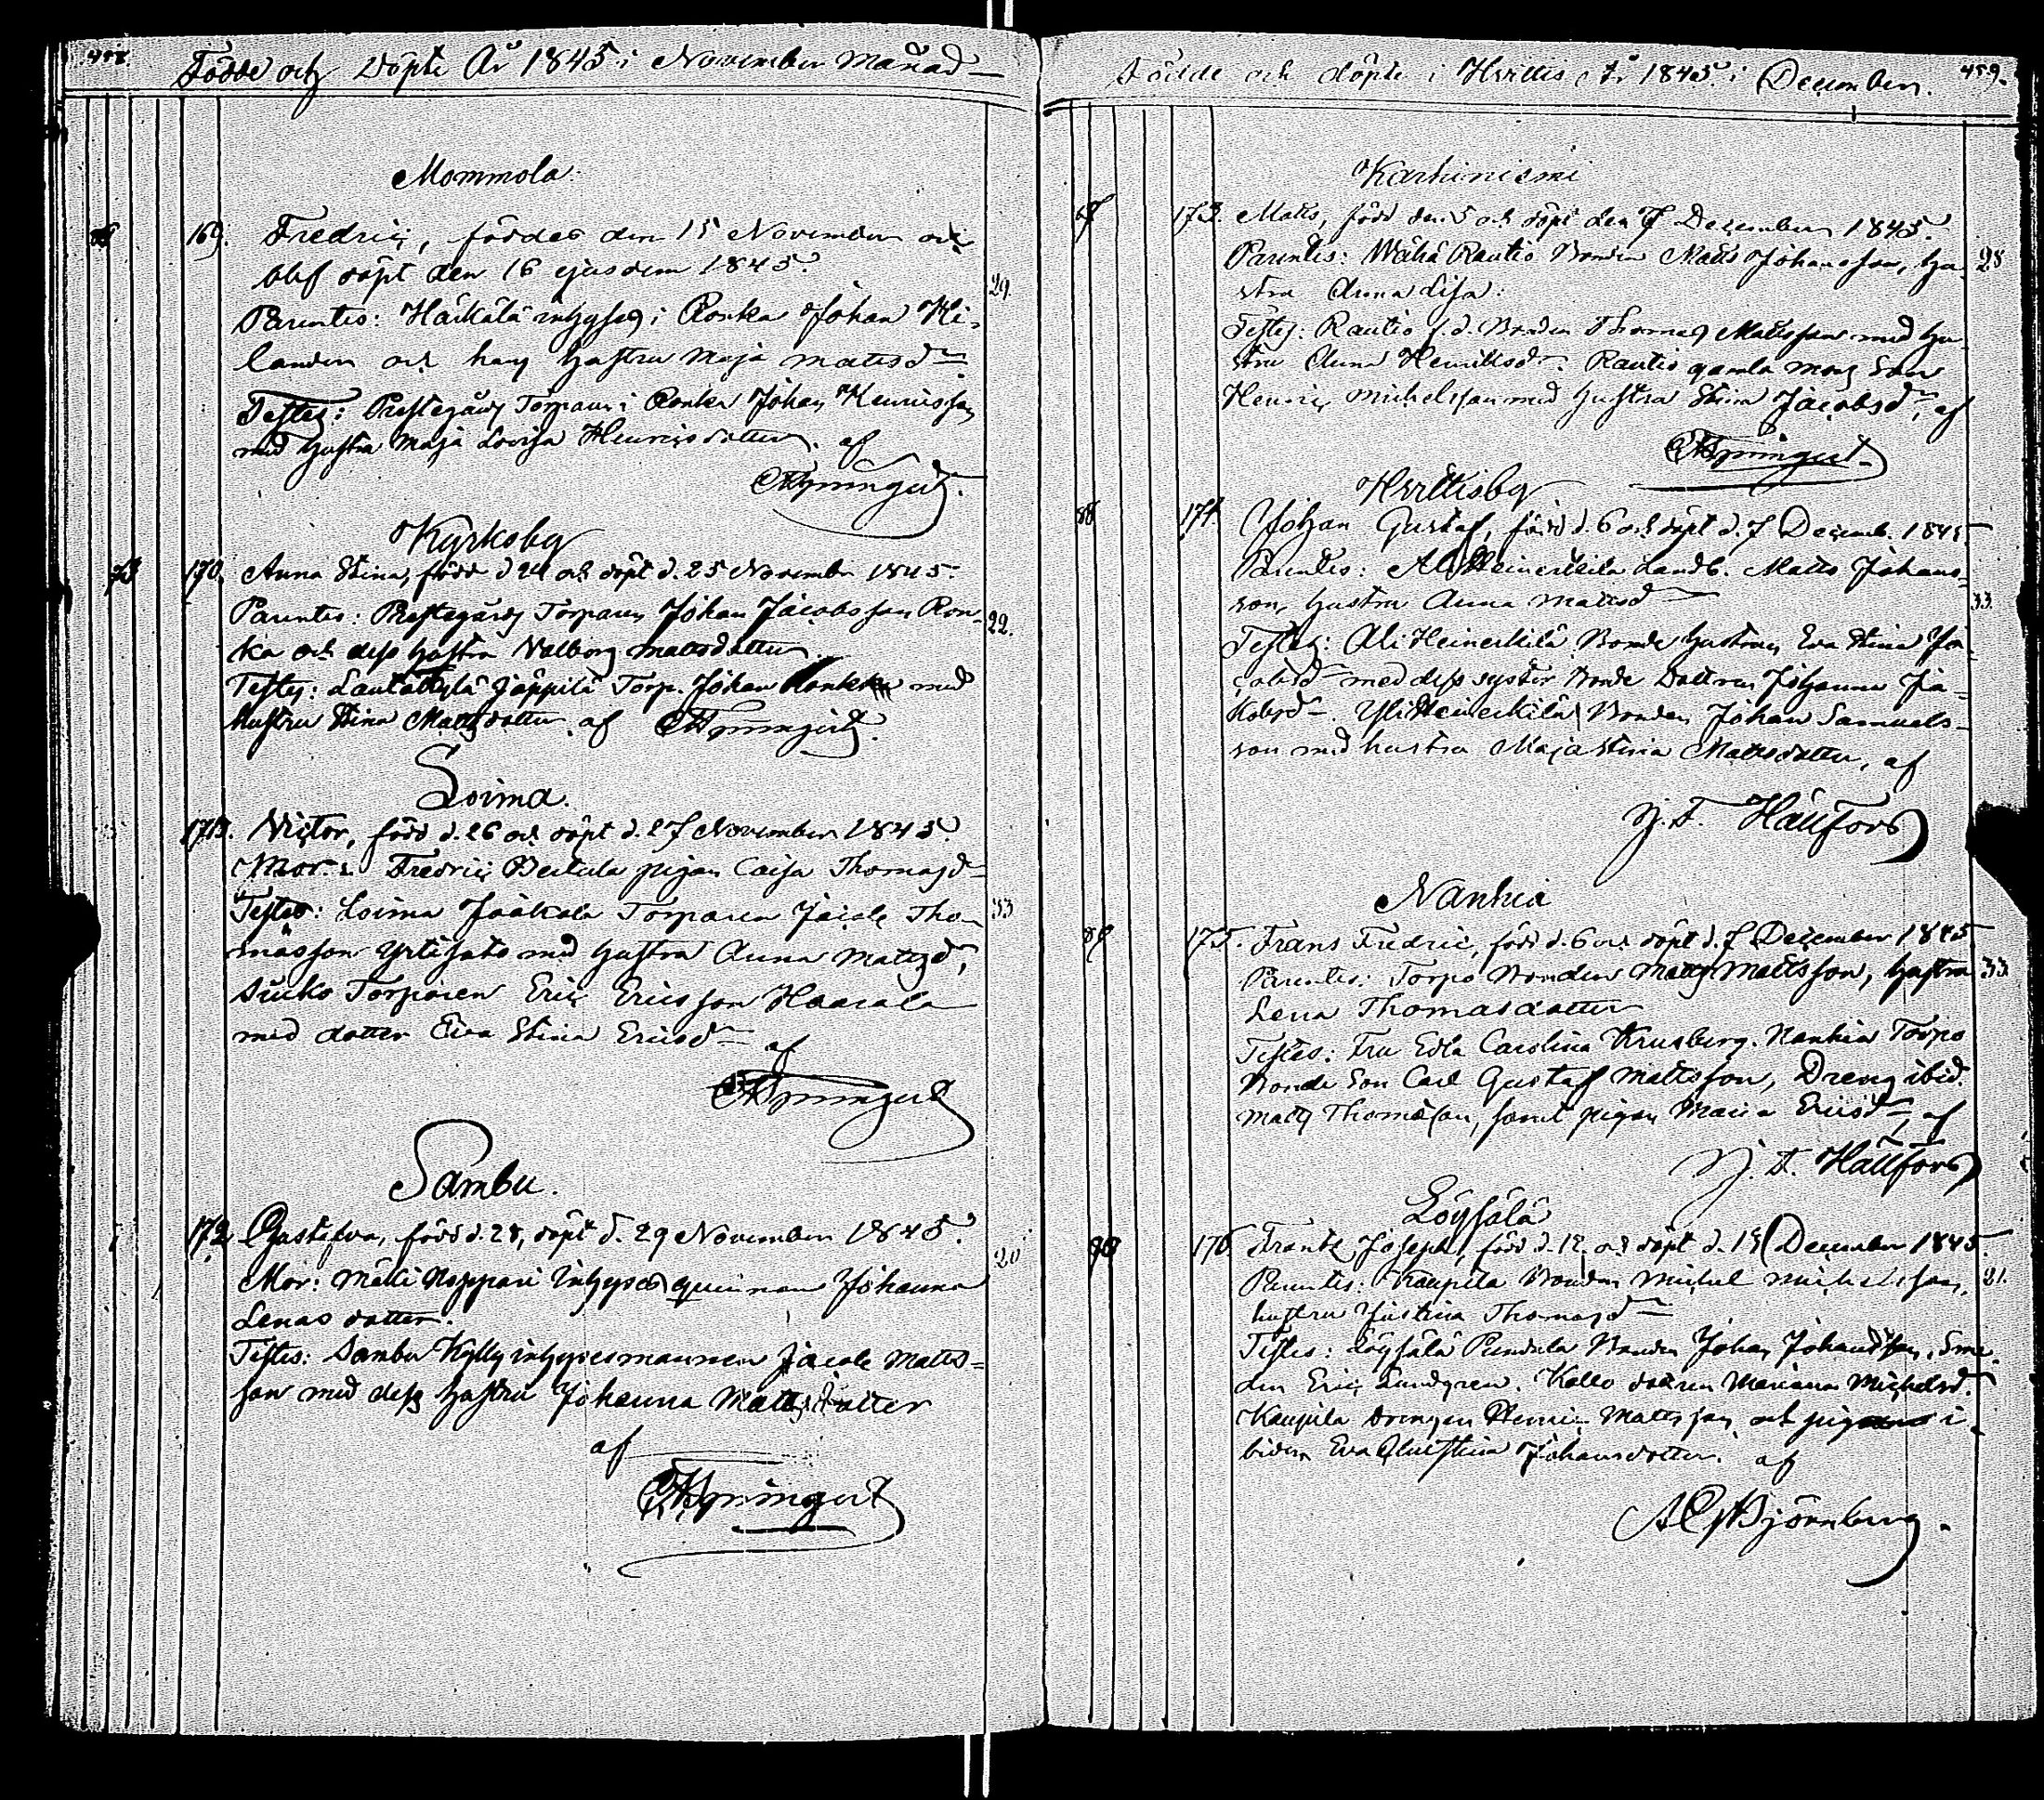 458.
Födde och Döpte År 1845 i November Månad
Mommola.
169. Fredric, föddes den 15 November och
blef döpt den 16 ejusdem 1845.
29.
Parentes: Häikälä inhyses i Ronka Johan Ki-
landen och hans hustru Maja Matsdr
Testes: Prestegårds Torparen i Ronka Johan Henricsson
med hustru Maja Lovisa Henricsdotter. af
Kyrkoby
73 170. Anna Stina, född d 24 och döpt d. 25 November 1845.
Parentes: Prestegårds Torparen Johan Jacobsson Ron-
22.
ka och dess hustru Valborg Mattsdotter.
Testes: Lautakylä Jäppilä Torp. Johan med
hustru Stina Mattsdotter af
Loima.
171. Victor, född d. 26 och döpt d. 27 November 1845
Mor: Fredric Bertula pigan Caisa Thomasdr
Testes: Loima Jaakola Torparen Jacob Tho-
33
masson med hustru Anna Matsdr,
Suiko Torparen Eric Ericsson Haarala
med dotter Eva Stina Ericsdr
af
Sambu.
172. Gustafva, född d. 28, döpt d. 29 November 1845.
20
Mor: Matti Noppari Inhyses qvinnan Johanna
Lenas dotter.
Testes: Sambu Kylly inhysesmannen Jacob Matts-
son med dess hustru Johanna Matts dotter
af
459.
Födde och döpte i Hvittis År 1845 i December.
Karhiniemi
87 173. Matts, född den 5 och döpt den 7 December 1845.
Parentes: Wähä Rautio Bonden Matts Johansson, hu-
28
stru Anna Lisa.
Testes: Rautio f.d. Bonden Thomas Mattsson med hu-
stru Anna Henriksdr. Rautio gamla Son
Henric Michelsson med hustru Stina Jacobsdr, af
Hvittisby
88 174. Johan Gustaf, född d. 6 och döpt d. 7 Decemb. 1845.
Parentes: Ali Heinerkilä Landb. Matts Johans-
son, hustru Anna Mattsd
33.
Testes: Ali Heinerkilä Bonde hustrun Eva Stina Ja-
cobsd med dess syster Bonde Dottren Johanna Ja-
kobsd. Yli Heinerkilä Bonden Johan Samuels-
son med hustru Maja Stina Mattsdotter, af
J. F. Hällfors
Nanhia
89 175. Frans Fredric, född d. 6 och döpt d. 7 December 1845
Parentes: Torpo Bonden Matts Mattsson, hustru
33
Lena Thomasdotter
Testes: Fru Edla Carolina Krusberg. Nanhia Torpo
Bonde Son Carl Gustaf Mattsson, Dreng ibid.
Matts Thomasson, samt pigan Maria Ericsdr, af
J. F. Hällfors
Löysälä
90 176 Frantz Joseph, född d. 12 och döpt d. 15 December 1845.
Parentes: Kaupila Bonden Michel Michelsson,
21.
hustru Justina Thomasd
Testes: Löysälä Pendula Bonden Johan Johansson, Sme-
den Eric Lundgren. Kallo dottren Mariana Michelsd.
Kaupila Drengen Henric Mattsson och pigan i-
bidem Eva Christina Johansdotter. af
Björnberg.